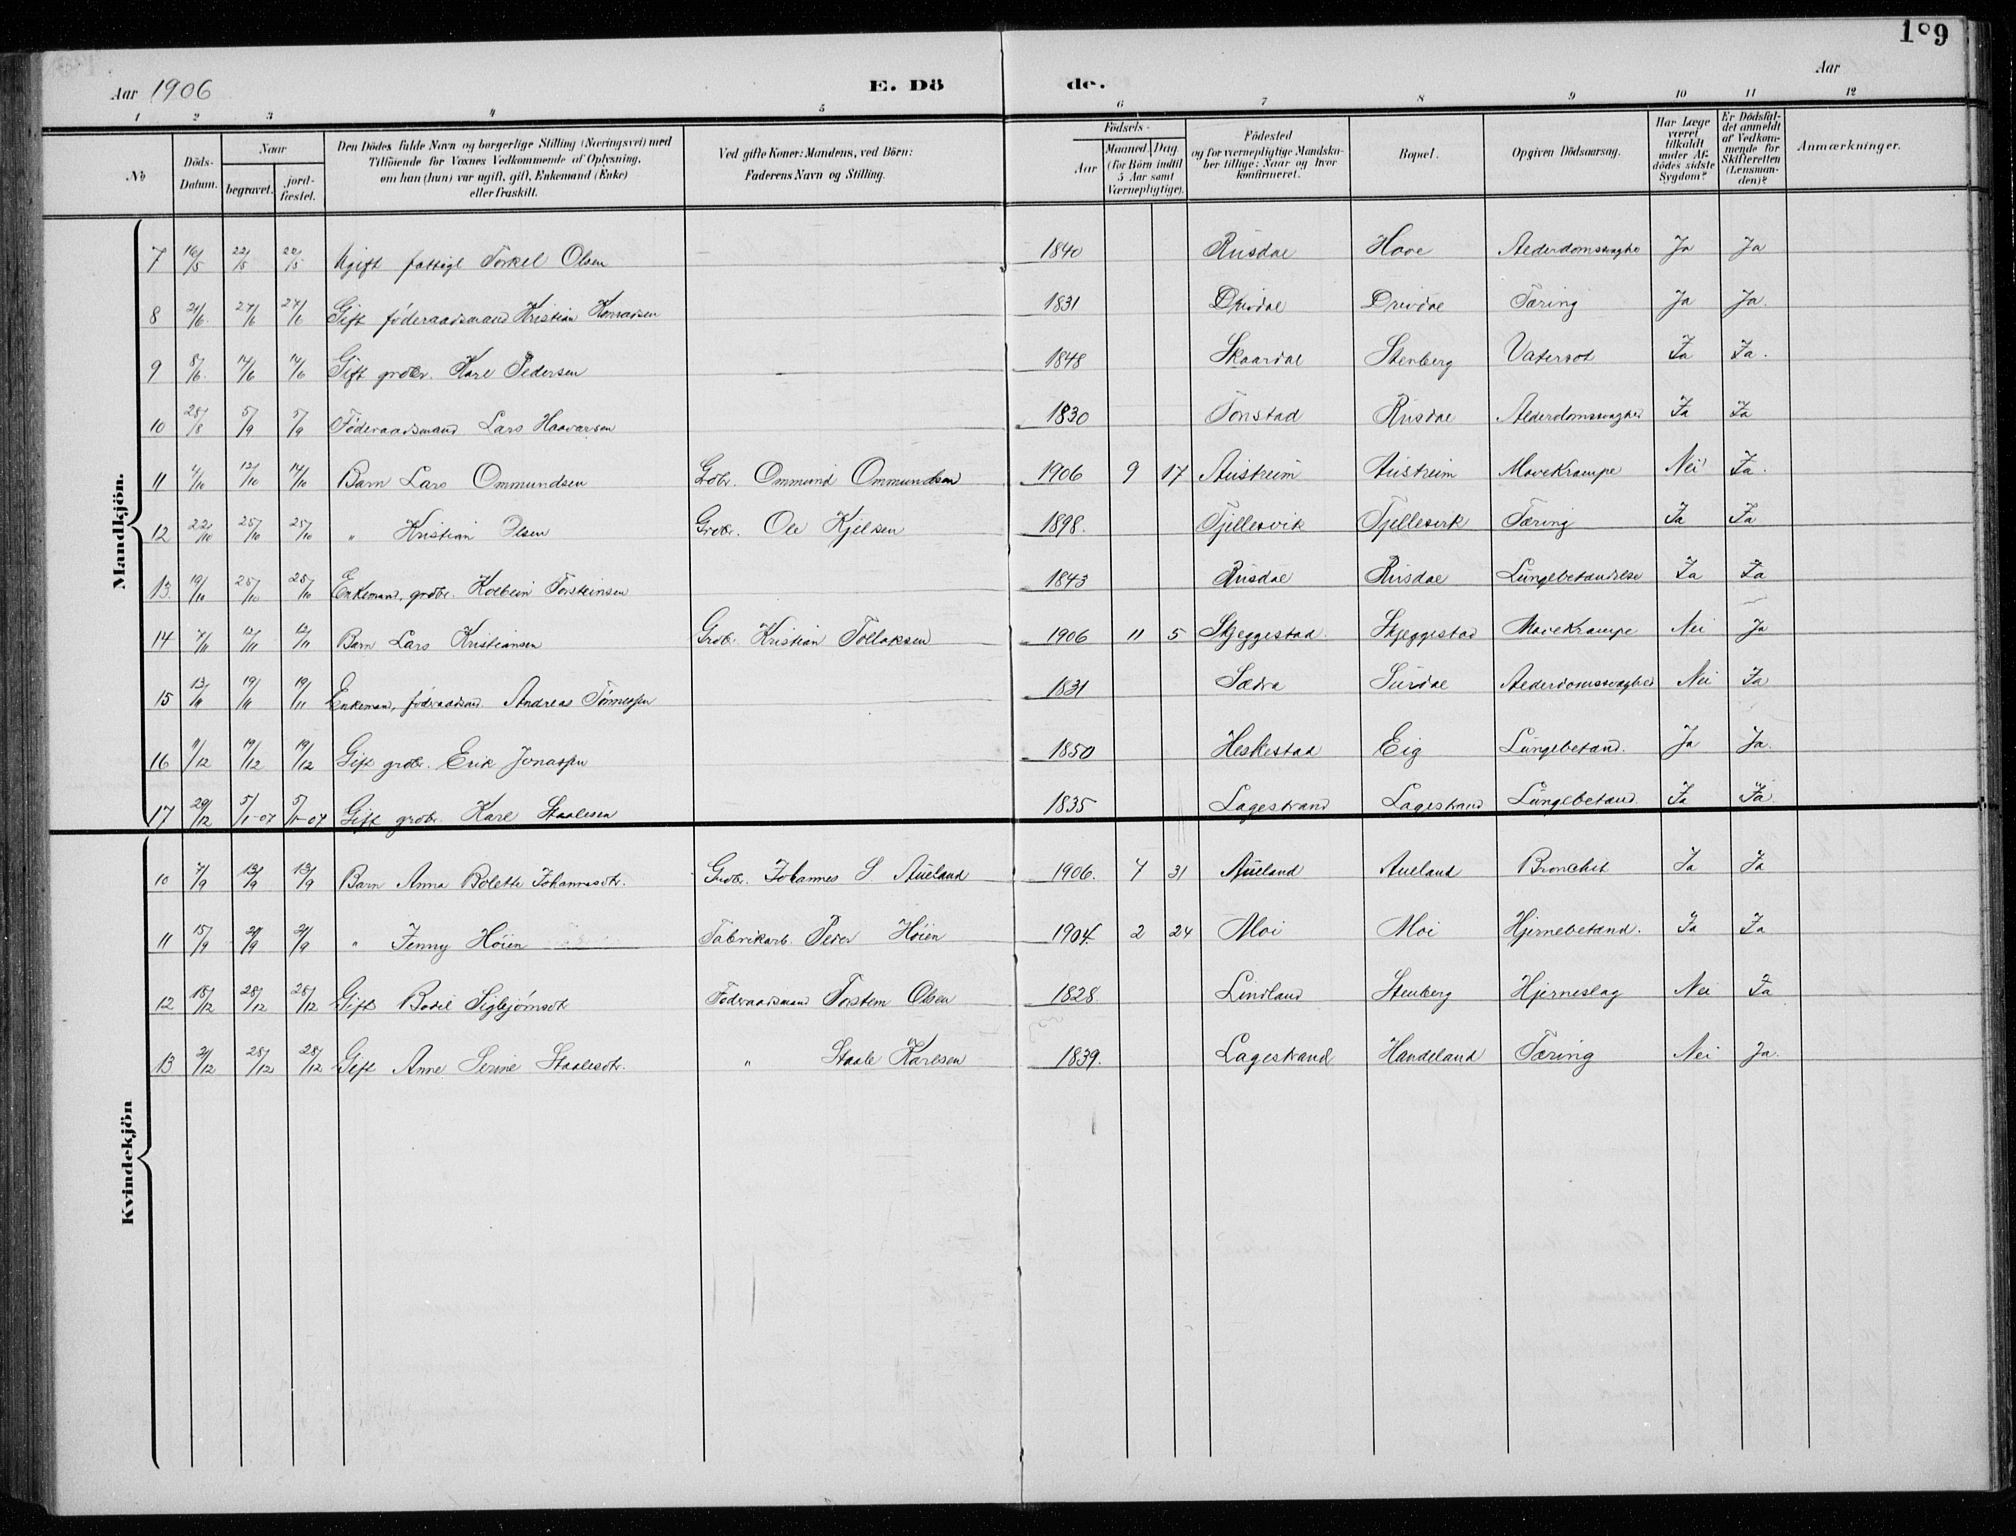 189
Aar 1906 E. Dö de. Aar
1 2 3 4 5 6 7 8 9 10 11 12
No
Döds-Datum.
Naar
begravet.
jord-fæstet.
Den Dödes fulde Navn og borgerlige Stilling (Næringsvei) med
Tilföiende for Voxnes Vedkommende af Oplysning,
om han (hun) var ugift, gift, Enkemand (Enke)
eller fraskilt.
Ved gifte Koner: Mandens, ved Börn:
Faderens Navn og Stilling.
Födsels-
Aar
Maaned Dag
(for Börn indtil
5 Aar samt
Værnepligtige).
Födested
og for værnepligtige Mandska-
ber tillige: Naar og hvor
konfirmeret.
Bopæl.
Opgiven Dödsaarsag.
Har Læge
været
tilkaldt
under Af-
dödes sidste
Sygdom?
Er Dödsfal-
det anmeldt
af Vedkom-
mende for
Skifteretten
(Lensman-
den)?
Anmærkninger.
Mandkjön.
7 16/5 22/5 22/5 Ugift fattigl Torkel Olsen 1840 Rusdal Hove Alderdomssvaghe Ja Ja
8 21/6 27/6 27/6 Gift föderaadsmand Kristian Konradsen 1831 Dreidal Dreidal Tæring Ja Ja.
9 8/6 14/6 14/6 Gift grdbr. Karl Pedersen 1848 Skaardal Stenberg Vatersot Ja Ja.
10 28/8 5/9 5/9 Föderaadsmand Lars Haavarsen 1830 Tonstad Rusdal Alderdomssvaghed Ja Ja
11 4/10 12/10 14/10 Barn Lars Ommundsen Grdbr. Ommund Ommundsen 1906 9 17 Austreim Austreim Mavekrampe Nei Ja.
12 22/10 25/10 25/10 " Kristian Olsen Grdbr. Ole Kjelsen 1898. Tjellesvik Tjellesvik Tæring Ja Ja
13. 19/10 25/10 25/10 Enkemand, grdbr. Kolbein Torsteinsen 1843 Rusdal Rusdal Lungebetændelse Ja Ja
14 7/11 12/11 12/11 Barn Lars Kristiansen Grdbr. Kristian Tollaksen 1906 11 5 Skjeggestad Skjeggestad Mavekrampe Nei Ja
15 13/11 19/11 19/11 Enkeman, föderaadsmd Andreas Tönnessen 1831 Sædra Surdal Alderdomssvaghed Nei Ja
16 11/12 19/12 19/12 Gift grdbr. Erik Jonassen 1850 Heskestad Eig Lungebetænd. Ja Ja.
17 29/12 5/1-07 5/1-07 Gift grdbr. Karl Staalesen 1835 Lagestrand Lagestrand Lungebetænd. Ja Ja
Kvindekjön
10 7/9 13/9 13/9 Barn Anna Bolette Johannesdtr. Grdbr. Johannes S. Aueland 1906. 7 31 Aueland Aueland Bronchit Ja Ja
11 15/9 21/9 21/9 " Jenny Höien Fabrikarb. Peder Höien 1904. 2 24 Moi Moi Hjernebetænd. Ja Ja
12 15/12 28/12 28/12 Gift Bodil Sigbjörnsdtr Föderaadsmand Torstein Olsen 1828 Lindland Stenberg Hjerneslag Nei Ja
13 21/12 28/12 28/12 Gift Anne Serine Staalesdtr. " Staale Karlsen 1839. Lagestrand Handeland Tæring Nei Ja.